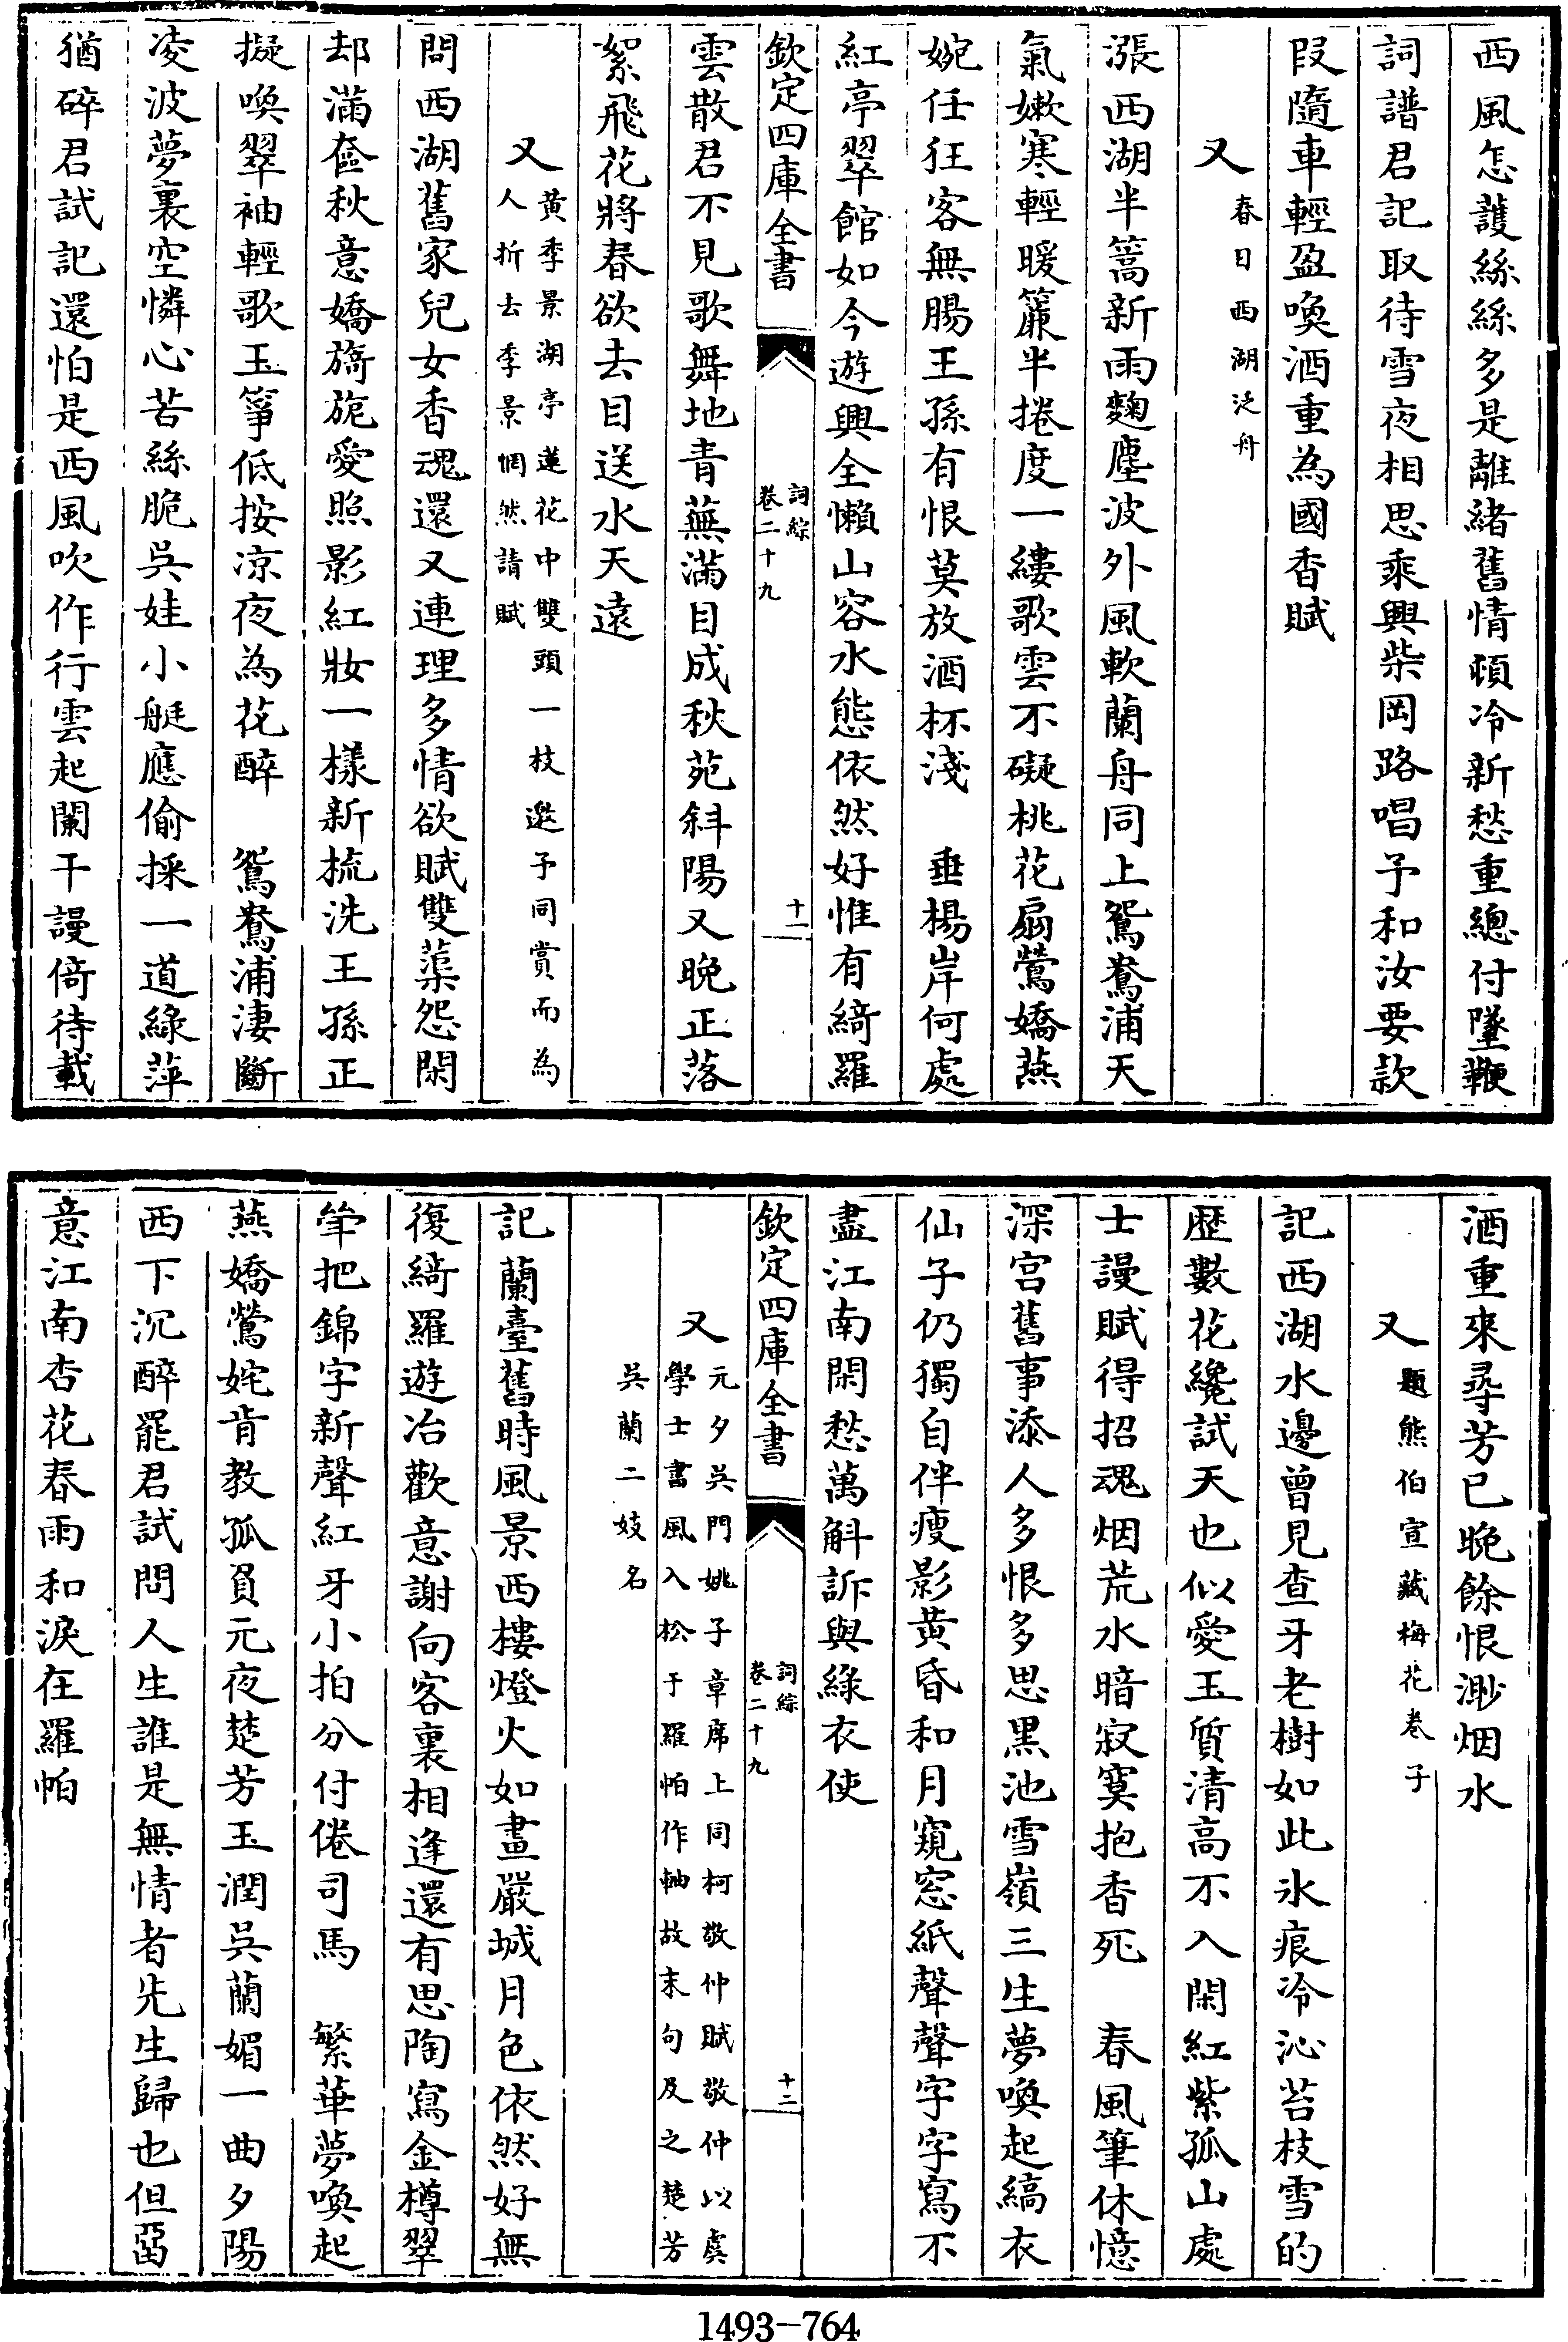 西風怎䕶絲絲多是離緒舊情頓冷新愁重總付墜鞭
詞譜君記取待雪夜相思乘興柴岡路唱予和汝要款
叚隨車輕盈喚酒重為國香賦
又春日西湖泛舟
漲西湖半篙新雨麴塵波外風軟蘭舟同上鴛鴦浦天
氣嫰寒輕暖簾半捲度一縷歌雲不礙桃花扇鶯嬌燕
婉任狂客無腸王孫有恨莫放酒杯淺　垂楊岸何處
紅亭翠館如今遊興全懶山容水態依然好惟有綺羅
欽定四庫全書
詞綜
卷二十九
十一
雲散君不見歌舞地青蕪滿目成秋苑斜陽又晚正落
絮飛花將春欲去目送水天遠
又黃季景湖亭蓮花中雙頭一枝邀予同賞而為
人折去季景惘然請賦
問西湖舊家兒女香魂還又連理多情欲賦雙蕖怨閑
却滿奩秋意嬌旖旎愛照影紅妝一樣新梳洗王孫正
擬喚翠袖輕歌玉箏低按涼夜為花醉　鴛鴦浦淒斷
凌波夢裏空憐心苦絲脆吳娃小艇應偷採一道綠萍
猶碎君試記還怕是西風吹作行雲起闌干謾倚待載
酒重來尋芳已晚餘恨渺烟水
又題熊伯宣藏梅花卷子
記西湖水邊曾見查牙老樹如此氷痕冷沁苔枝雪的
歴數花纔試天也似愛玉質清高不入閑紅紫孤山處
士謾賦得招魂烟荒水暗寂寞抱香死　春風筆休憶
深宮舊事添人多恨多思黑池雪嶺三生夢喚起縞衣
仙子仍獨自伴瘦影黄昏和月窺窓紙聲聲字字寫不
盡江南閑愁萬斛訴與綠衣使
欽定四庫全書
詞綜
卷二十九
十二
又元夕吳門姚子章席上同柯敬仲賦敬仲以虞
學士書風入松于羅帕作軸故末句及之楚芳
吳蘭二妓名
記蘭臺舊時風景西樓燈火如晝嚴城月色依然好無
復綺羅遊冶歡意謝向客裏相逢還有思陶寫金樽翠
斝把錦字新聲紅牙小拍分付倦司馬　繁華夢喚起
燕嬌鶯姹肯教孤負元夜楚芳玉潤吳蘭媚一曲夕陽
西下沉醉罷君試問人生誰是無情者先生歸也但畱
意江南杏花春雨和淚在羅帕
1493-764